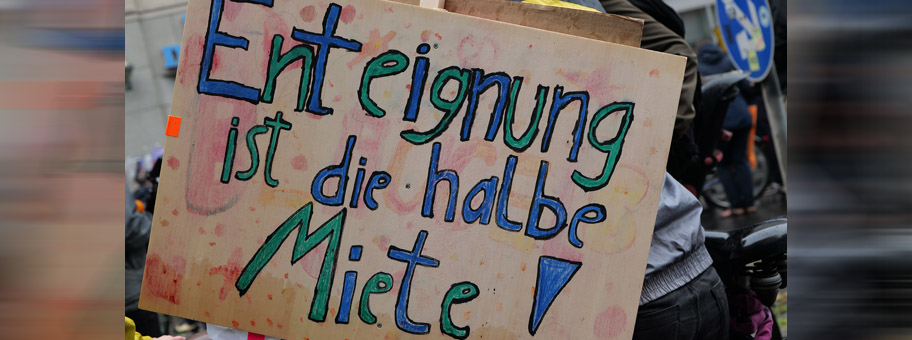 Enteignung
ist die halbe
Miete!